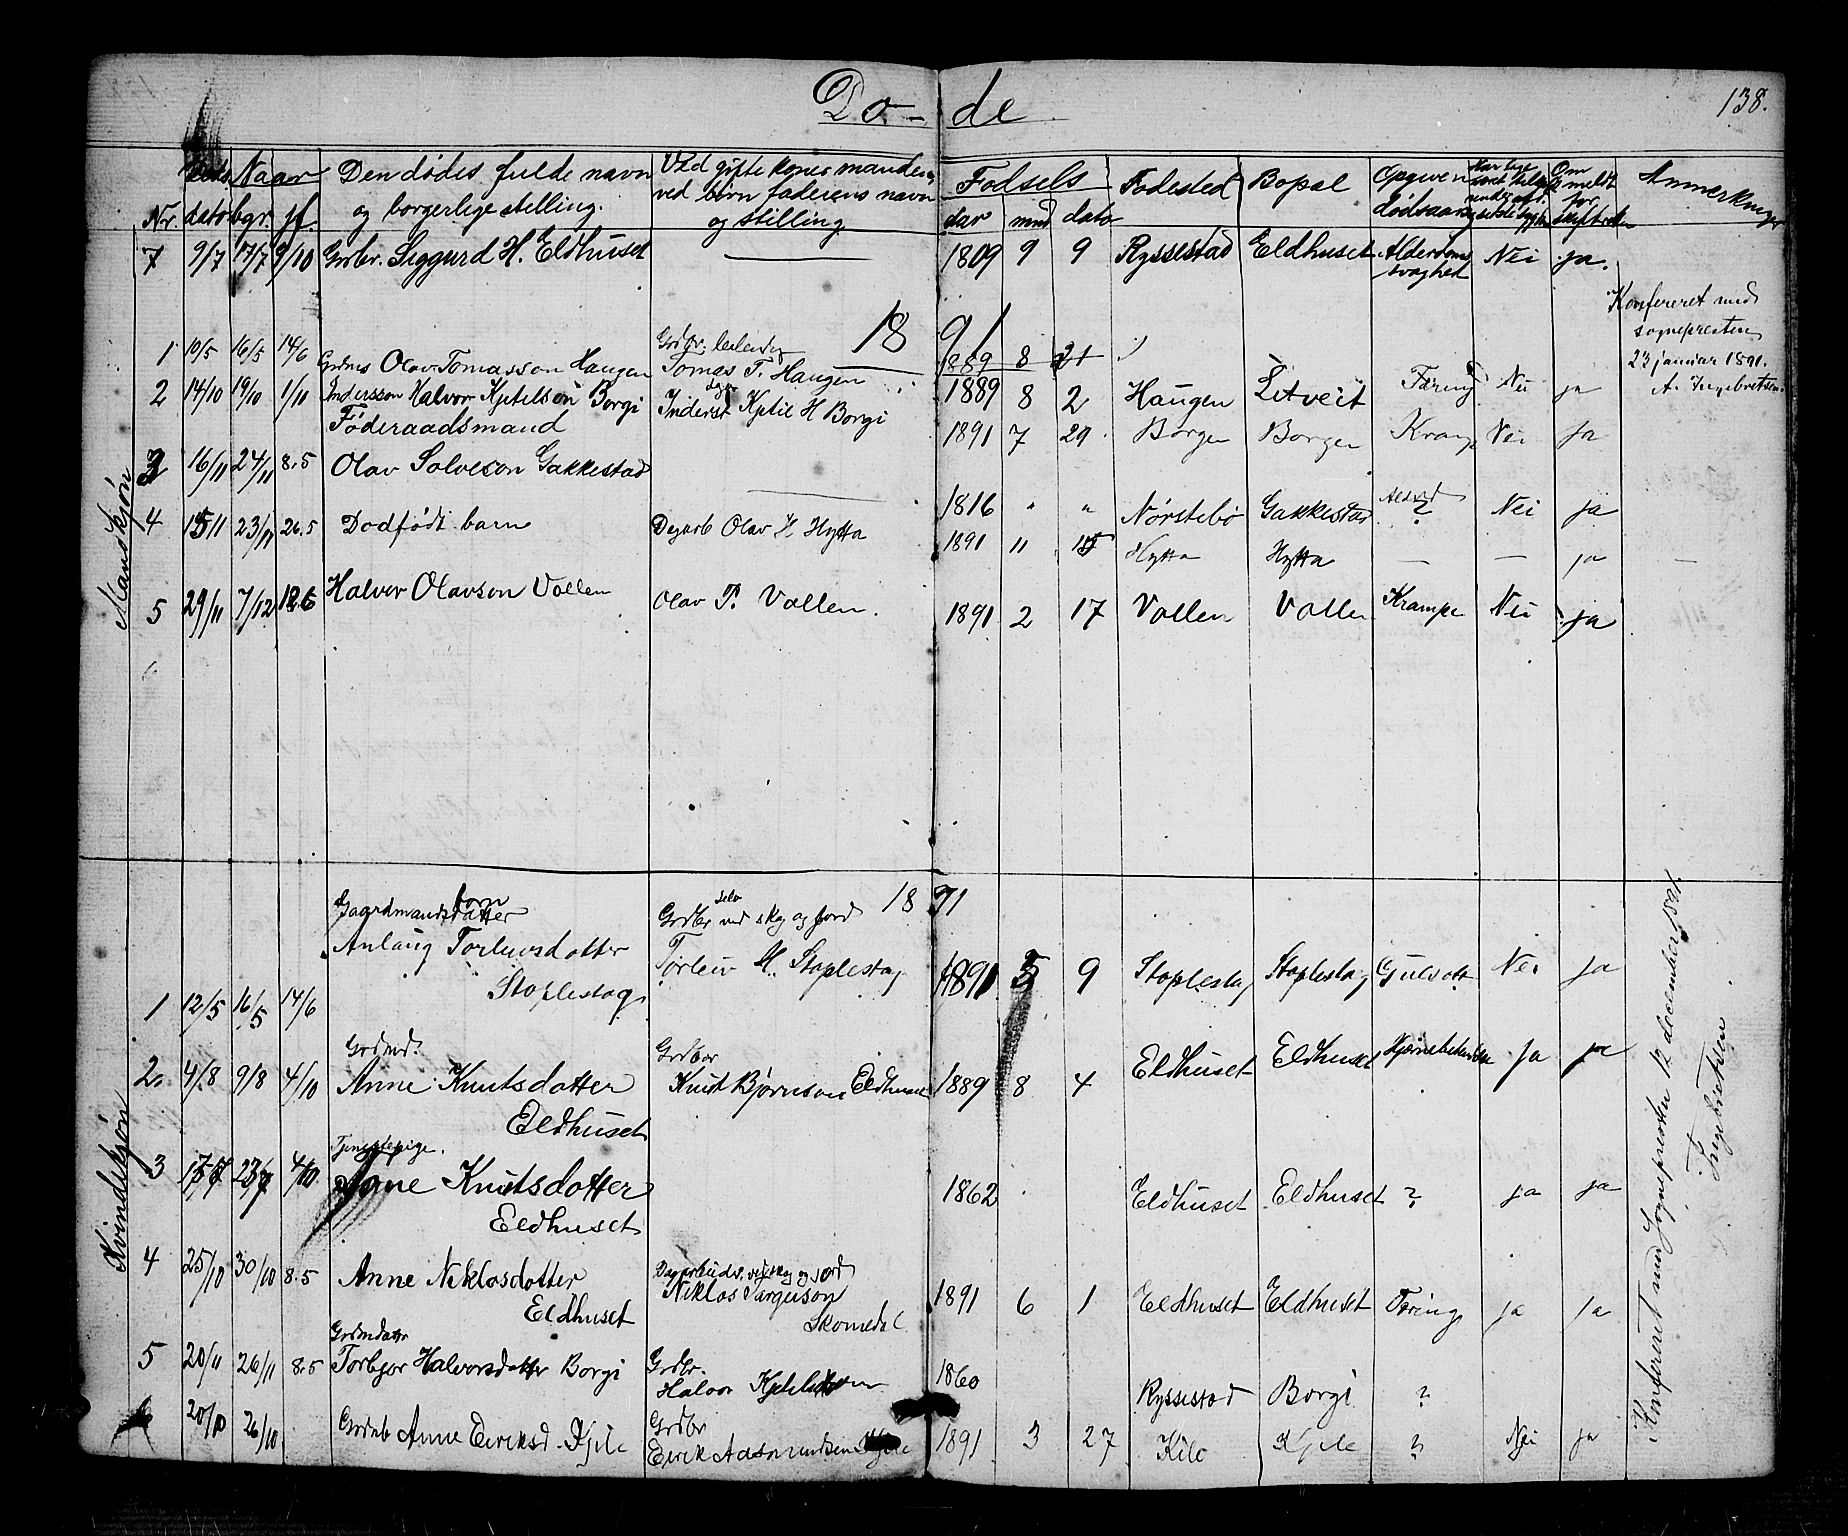 Dø- de
138.
Nr. Døds dato Naar bgr. jf. Den dødes fulde navn og borgerlige stilling. Ved gifte koner mandens, ved børn faderens navn og stilling Fødsels aar mnd dato Fødested Bopæl Opgiven dødsaarsag Om anmeldt for skifteret Anmerkninger
7 9/7 17/7 9/10 Grdbr. Siggurd H. Eldhuset 1809 9 9 Ryssestad Eldhuset Alderdoms svaghed Nei ja.
Konfereret med
sognepresten
23 januar 1891.
A. Ingebretsen
1891
Mandskjøn
1 10/5 16/5 14/6 Grdms Olav Tomasson Haugen Grdbr. leilending Tomas T. Haugen 1889 8 21
2 14/10 19/10 1/11 Indersson Halvor Kjetelson Borgi Inderst Kjetil H Borgi 1889 8 2 Haugen Litveit Tæring Nei ja
Føderaadsmand 1891 7 29 Borgen Borgen Krampe Nei Ja
3 16/11 24/11 8.5 Olav Solveson Gakkestad 1816 " " Nørstebø Gakkestad ? Nei ja
4 15/11 23/11 26.5 Dodfødt barn Dagarb Olav H Hytta 1891 11 15 Hytta Hytta — — ja —
5 29/11 7/12 18.6 Halvor Olavson Vollen Olav T. Vollen. 1891 2 17 Vollen Vollen Krampe Nei ja
6
1891
Kvindekjøn
Gaardmandsdatter barn Grdbr selv ved skog og jord
1 12/5 16/5 14/6 Anlaug Torleivsdotter Stoplestog Torleiv H. Stoplestog 1891 5 9 Stoplestog Stoplestog Gulsott Nei ja
Grdmd. Grdbor
2. 4/8 9/8 4/10 Anne Knutsdotter Eldhuset Knut Bjørnson Eldhuset 1889 8 4 Eldhuset Eldhuset Ja ja
Tjenestepige.
3 17/7 23/7 4/10 Anne Knutsdotter Eldhuset 1862 Eldhuset Eldhuset ? ja ja
4 25/10 30/10 8.5 Anne Niklosdotter Eldhuset Niklos Targeison Skomedal 1891 6 1 Eldhuset Eldhuset Tæring ja ja
Grdmdatr
5 20/11 26/11 8.5 Torbjor Halvorsdotter Borgi Grdbr. Halvor Kjetelson 1860 Ryssestad Borgi ?
6 20/10 26/10 Grdmb Anne Eiriksd. Kjile Grdbr Eirik Aasmundsen Kjile 1891 3 27 Kile Kjile ? Nei ja
Konfereret med Sognepresten 12 december 1891.
Ingebretsen